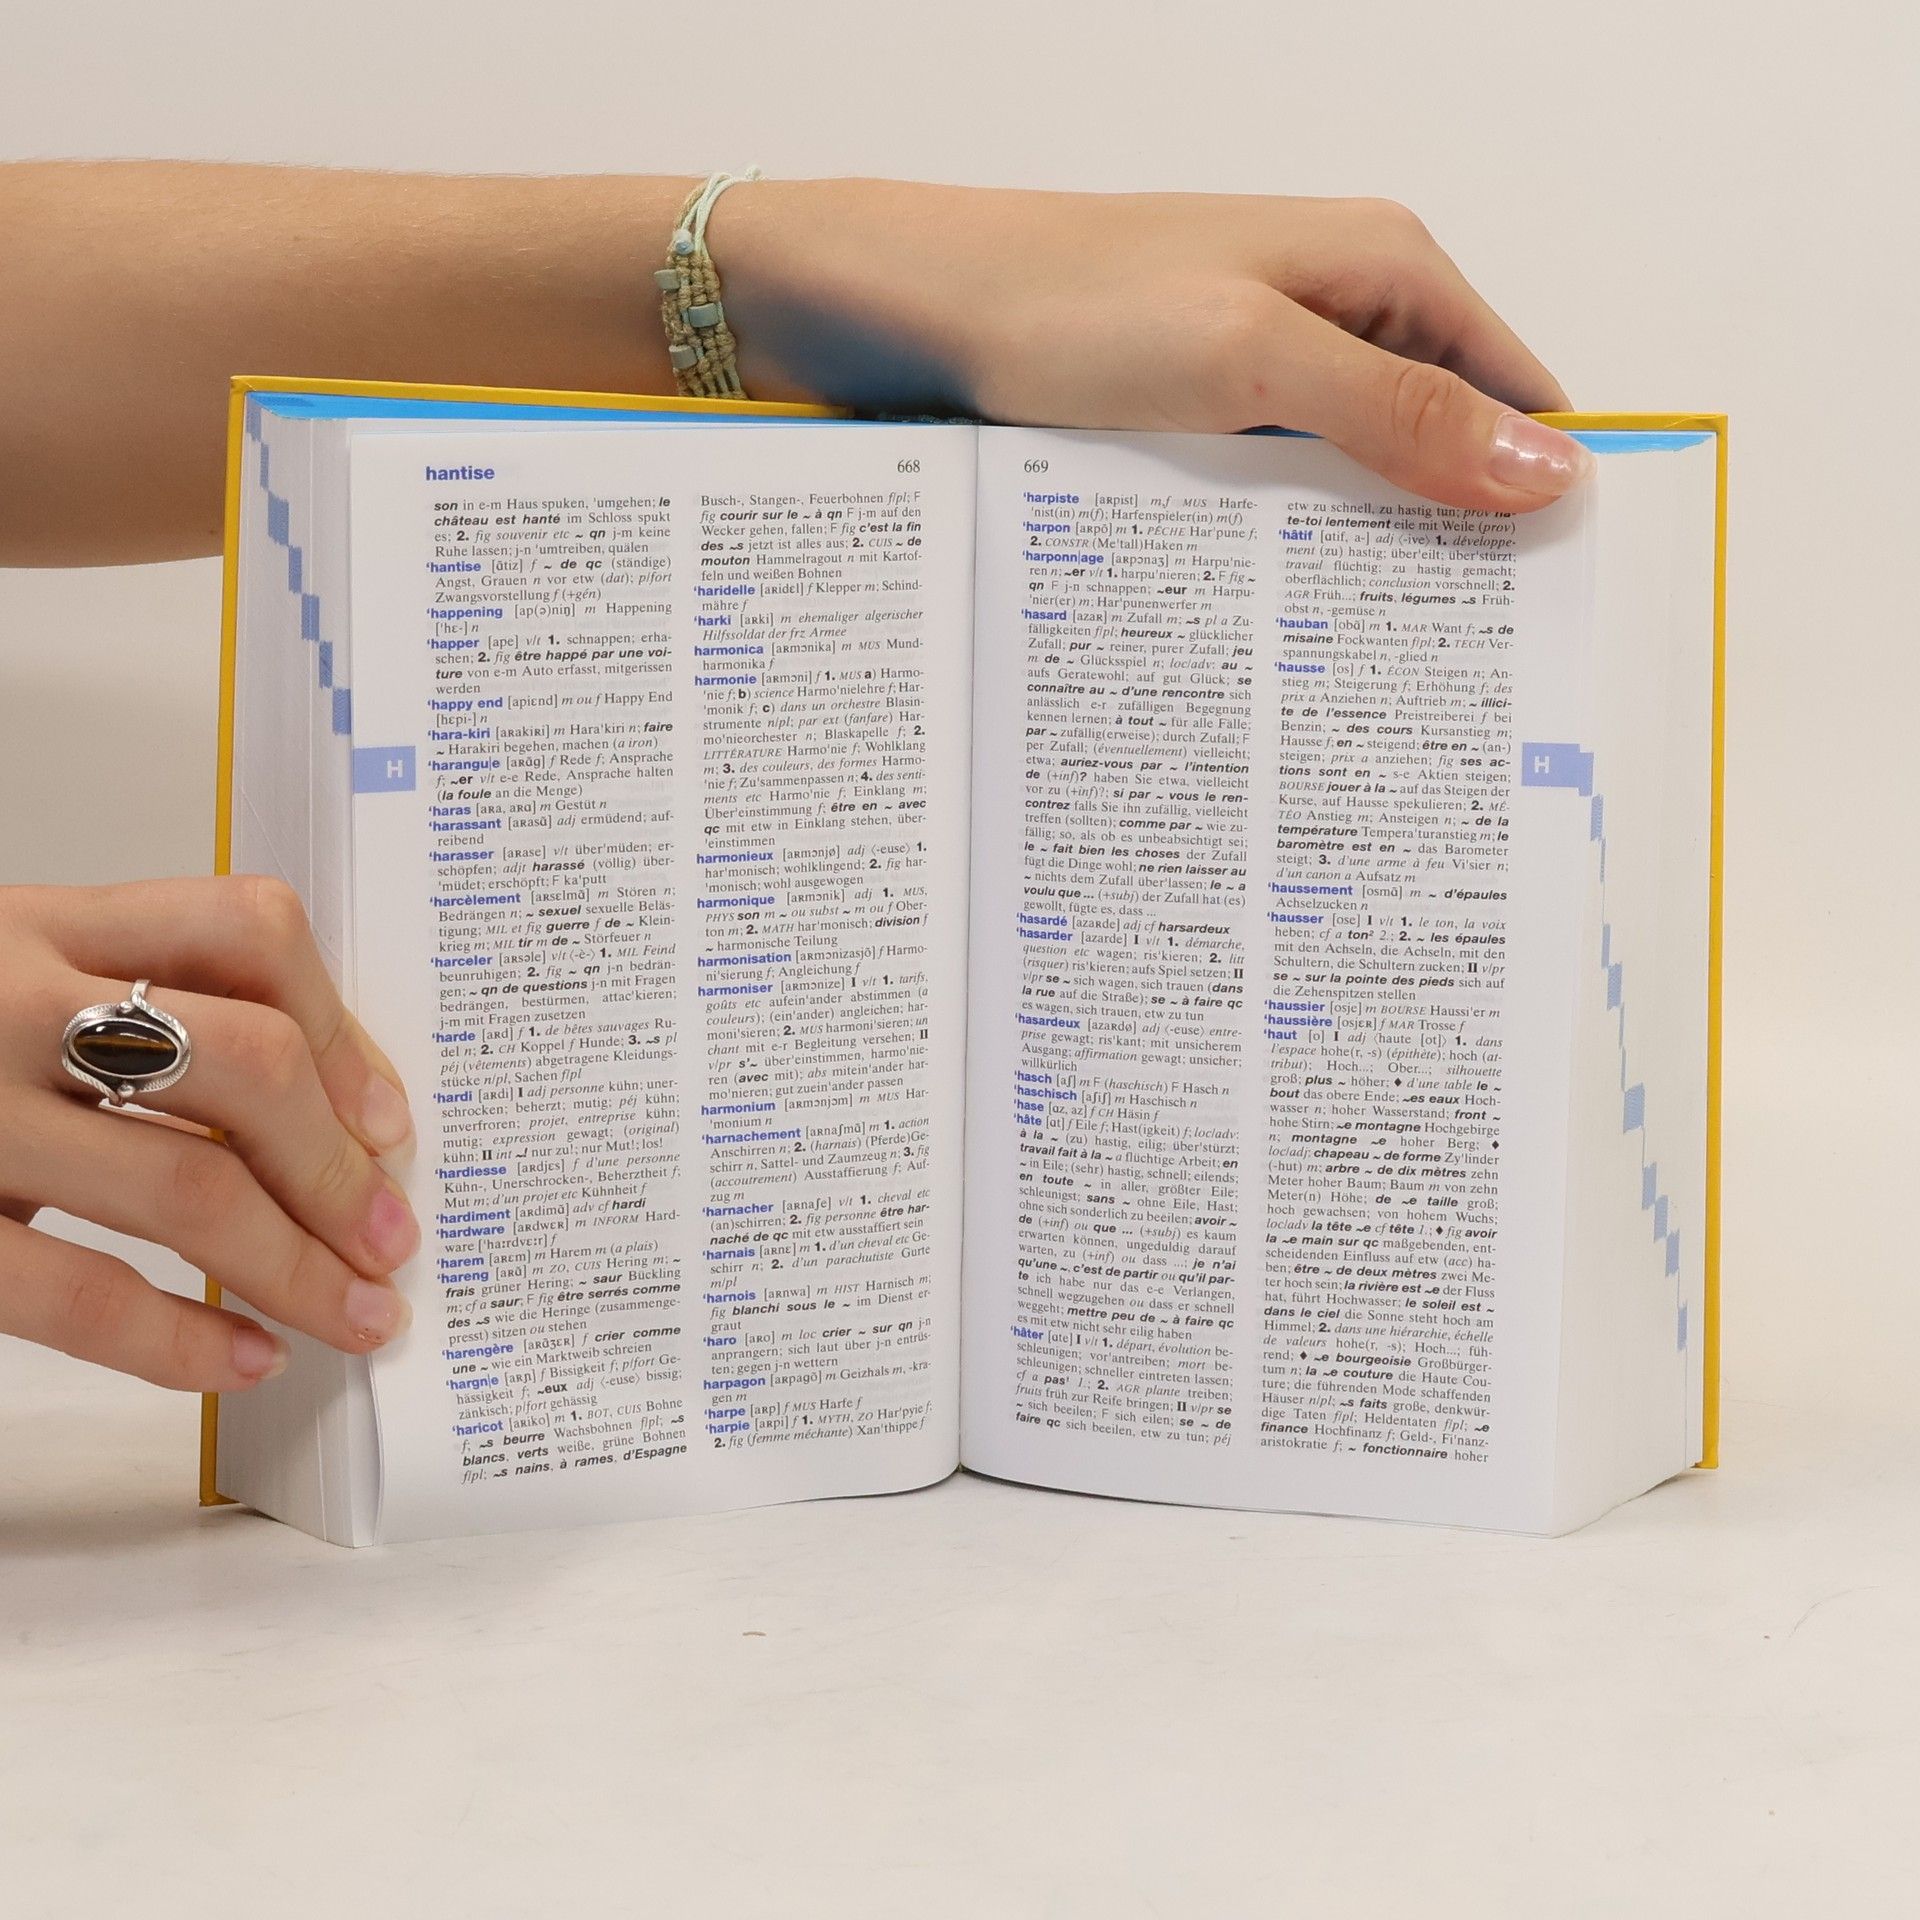 hantise
668
son in e-m Haus spuken, 'umgehen; le
château est hanté im Schloss spukt
es; 2. fig souvenir etc ~ qn j-m keine
Ruhe lassen; j-n 'umtreiben, quälen
'hantise [ɑ̃tiz] f ~ de qc (ständige)
Angst, Grauen n vor etw (dat); p/fort
Zwangsvorstellung f (+gén)
'happening [ap(ə)niŋ] m Happening
['hɛ-] n
'happer [ape] v/t 1. schnappen; erha-
schen; 2. fig être happé par une voi-
ture von e-m Auto erfasst, mitgerissen
werden
'happy end [apiɛnd] m ou f Happy End
[hɛpi-] n
'hara-kiri [aʀakiʀi] m Hara'kiri n; faire
~ Harakiri begehen, machen (a iron)
'harangu|e [aʀɑ̃g] f Rede f; Ansprache
f; ~er v/t e-e Rede, Ansprache halten
(la foule an die Menge)
'haras [aʀa, aʀɑ] m Gestüt n
'harassant [aʀasɑ̃] adj ermüdend; auf-
reibend
'harasser [aʀase] v/t über'müden; er-
schöpfen; adjt harassé (völlig) über-
'müdet; erschöpft; F ka'putt
'harcèlement [aʀsɛlmɑ̃] m Stören n;
Bedrängen n; ~ sexuel sexuelle Beläs-
tigung; MIL et fig guerre f de ~ Klein-
krieg m; MIL tir m de ~ Störfeuer n
'harceler [aʀsəle] v/t ⟨-è-⟩ 1. MIL Feind
beunruhigen; 2. fig ~ qn j-n bedrän-
gen; ~ qn de questions j-n mit Fragen
bedrängen, bestürmen, attac'kieren;
j-m mit Fragen zusetzen
'harde [aʀd] f 1. de bêtes sauvages Ru-
del n; 2. CH Koppel f Hunde; 3. ~s pl
péj (vêtements) abgetragene Kleidungs-
stücke n/pl, Sachen f/pl
'hardi [aʀdi] I adj personne kühn; uner-
schrocken; beherzt; mutig; péj kühn;
unverfroren; projet, entreprise kühn;
mutig; expression gewagt; (original)
kühn; II int ~! nur zu!; nur Mut!; los!
'hardiesse [aʀdjɛs] f d'une personne
Kühn-, Unerschrocken-, Beherztheit f;
Mut m; d'un projet etc Kühnheit f
'hardiment [aʀdimɑ̃] adv cf hardi
'hardware [aʀdwɛʀ] m INFORM Hard-
ware ['ha:rdvɛ:r] f
'harem [aʀɛm] m Harem m (a plais)
'hareng [aʀɑ̃] m ZO, CUIS Hering m; ~
frais grüner Hering; ~ saur Bückling
m; cf a saur; F fig être serrés comme
des ~s wie die Heringe (zusammenge-
presst) sitzen ou stehen
'harengère [aʀɑ̃ʒɛʀ] f crier comme
une ~ wie ein Marktweib schreien
'hargn|e [aʀɲ] f Bissigkeit f; p/fort Ge-
hässigkeit f; ~eux adj ⟨-euse⟩ bissig;
zänkisch; p/fort gehässig
'haricot [aʀiko] m 1. BOT, CUIS Bohne
f; ~s beurre Wachsbohnen f/pl; ~s
blancs, verts weiße, grüne Bohnen
f/pl; ~s nains, à rames, d'Espagne
Busch-, Stangen-, Feuerbohnen f/pl; F
fig courir sur le ~ à qn F j-m auf den
Wecker gehen, fallen; F fig c'est la fin
des ~s jetzt ist alles aus; 2. CUIS ~ de
mouton Hammelragout n mit Kartof-
feln und weißen Bohnen
'haridelle [aʀidɛl] f Klepper m; Schind-
mähre f
'harki [aʀki] m ehemaliger algerischer
Hilfssoldat der frz Armee
harmonica [aʀmɔnika] m MUS Mund-
harmonika f
harmonie [aʀmɔni] f 1. MUS a) Harmo-
'nie f; b) science Harmo'nielehre f; Har-
'monik f; c) dans un orchestre Blasin-
strumente n/pl; par ext (fanfare) Har-
mo'nieorchester n; Blaskapelle f; 2.
LITTÉRATURE Harmo'nie f; Wohlklang
m; 3. des couleurs, des formes Harmo-
'nie f; Zu'sammenpassen n; 4. des senti-
ments etc Harmo'nie f; Einklang m;
Über'einstimmung f; être en ~ avec
qc mit etw in Einklang stehen, über-
'einstimmen
harmonieux [aʀmɔnjø] adj ⟨-euse⟩ 1.
har'monisch; wohlklingend; 2. fig har-
'monisch; wohl ausgewogen
harmonique [aʀmɔnik] adj 1. MUS,
PHYS son m ~ ou subst ~ m ou f Ober-
ton m; 2. MATH har'monisch; division f
~ harmonische Teilung
harmonisation [aʀmɔnizasjɔ̃] f Harmo-
ni'sierung f; Angleichung f
harmoniser [aʀmɔnize] I v/t 1. tarifs,
goûts etc aufein'ander abstimmen (a
couleurs); (ein'ander) angleichen; har-
moni'sieren; 2. MUS harmoni'sieren; un
chant mit e-r Begleitung versehen; II
v/pr s'~ über'einstimmen, harmo'nie-
ren (avec mit); abs mitein'ander har-
mo'nieren; gut zuein'ander passen
harmonium [aʀmɔnjɔm] m MUS Har-
'monium n
'harnachement [aʀnaʃmɑ̃] m 1. action
Anschirren n; 2. (harnais) (Pferde)Ge-
schirr n, Sattel- und Zaumzeug n; 3. fig
(accoutrement) Ausstaffierung f; Auf-
zug m
'harnacher [aʀnaʃe] v/t 1. cheval etc
(an)schirren; 2. fig personne être har-
naché de qc mit etw ausstaffiert sein
'harnais [aʀnɛ] m 1. d'un cheval etc Ge-
schirr n; 2. d'un parachutiste Gurte
m/pl
'harnois [aʀnwa] m HIST Harnisch m;
fig blanchi sous le ~ im Dienst er-
graut
'haro [aʀo] m loc crier ~ sur qn j-n
anprangern; sich laut über j-n entrüs-
ten; gegen j-n wettern
harpagon [aʀpagɔ̃] m Geizhals m, -kra-
gen m
'harpe [aʀp] f MUS Harfe f
'harpie [aʀpi] f 1. MYTH, ZO Har'pyie f;
2. fig (femme méchante) Xan'thippe f
H
669
'harpiste [aʀpist] m,f MUS Harfe-
'nist(in) m(f); Harfenspieler(in) m(f)
'harpon [aʀpɔ̃] m 1. PÊCHE Har'pune f;
2. CONSTR (Me'tall)Haken m
'harponn|age [aʀpɔnaʒ] m Harpu'nie-
ren n; ~er v/t 1. harpu'nieren; 2. F fig ~
qn F j-n schnappen; ~eur m Harpu-
'nier(er) m; Har'punenwerfer m
'hasard [azaʀ] m Zufall m; ~s pl a Zu-
fälligkeiten f/pl; heureux ~ glücklicher
Zufall; pur ~ reiner, purer Zufall; jeu
m de ~ Glücksspiel n; loc/adv: au ~
aufs Geratewohl; auf gut Glück; se
connaître au ~ d'une rencontre sich
anlässlich e-r zufälligen Begegnung
kennen lernen; à tout ~ für alle Fälle;
par ~ zufällig(erweise); durch Zufall; F
per Zufall; (éventuellement) vielleicht;
etwa; auriez-vous par ~ l'intention
de (+inf)? haben Sie etwa, vielleicht
vor zu (+inf)?; si par ~ vous le ren-
contrez falls Sie ihn zufällig, vielleicht
treffen (sollten); comme par ~ wie zu-
fällig; so, als ob es unbeabsichtigt sei;
le ~ fait bien les choses der Zufall
fügt die Dinge wohl; ne rien laisser au
~ nichts dem Zufall über'lassen; le ~ a
voulu que ... (+subj) der Zufall hat (es)
gewollt, fügte es, dass ...
'hasardé [azaʀde] adj cf harsardeux
'hasarder [azaʀde] I v/t 1. démarche,
question etc wagen; ris'kieren; 2. litt
(risquer) ris'kieren; aufs Spiel setzen; II
v/pr se ~ sich wagen, sich trauen (dans
la rue auf die Straße); se ~ à faire qc
es wagen, sich trauen, etw zu tun
'hasardeux [azaʀdø] adj ⟨-euse⟩ entre-
prise gewagt; ris'kant; mit unsicherem
Ausgang; affirmation gewagt; unsicher;
willkürlich
'hasch [aʃ] m F (haschisch) F Hasch n
'haschisch [aʃiʃ] m Haschisch n
'hase [ɑz, az] f CH Häsin f
'hâte [ɑt] f Eile f; Hast(igkeit) f; loc/adv:
à la ~ (zu) hastig, eilig; über'stürzt;
travail fait à la ~ a flüchtige Arbeit; en
~ in Eile; (sehr) hastig, schnell; eilends;
en toute ~ in aller, größter Eile;
schleunigst; sans ~ ohne Eile, Hast;
ohne sich sonderlich zu beeilen; avoir ~
de (+inf) ou que ... (+subj) es kaum
erwarten können, ungeduldig darauf
warten, zu (+inf) ou dass ...; je n'ai
qu'une ~, c'est de partir ou qu'il par-
te ich habe nur das e-e Verlangen,
schnell wegzugehen ou dass er schnell
weggeht; mettre peu de ~ à faire qc
es mit etw nicht sehr eilig haben
'hâter [ɑte] I v/t 1. départ, évolution be-
schleunigen; vor'antreiben; mort be-
schleunigen; schneller eintreten lassen;
cf a pas¹ 1.; 2. AGR plante treiben;
fruits früh zur Reife bringen; II v/pr se
~ sich beeilen; F sich eilen; se ~ de
faire qc sich beeilen, etw zu tun; péj
etw zu schnell, zu hastig tun; prov hâ-
te-toi lentement eile mit Weile (prov)
'hâtif [ɑtif, a-] adj ⟨-ive⟩ 1. développe-
ment (zu) hastig; über'eilt; über'stürzt;
travail flüchtig; zu hastig gemacht;
oberflächlich; conclusion vorschnell; 2.
AGR Früh...; fruits, légumes ~s Früh-
obst n, -gemüse n
'hauban [obɑ̃] m 1. MAR Want f; ~s de
misaine Fockwanten f/pl; 2. TECH Ver-
spannungskabel n, -glied n
'hausse [os] f 1. ÉCON Steigen n; An-
stieg m; Steigerung f; Erhöhung f; des
prix a Anziehen n; Auftrieb m; ~ illici-
te de l'essence Preistreiberei f bei
Benzin; ~ des cours Kursanstieg m;
Hausse f; en ~ steigend; être en ~ (an-)
steigen; prix a anziehen; fig ses ac-
tions sont en ~ s-e Aktien steigen;
BOURSE jouer à la ~ auf das Steigen der
Kurse, auf Hausse spekulieren; 2. MÉ-
TÉO Anstieg m; Ansteigen n; ~ de la
température Tempera'turanstieg m; le
baromètre est en ~ das Barometer
steigt; 3. d'une arme à feu Vi'sier n;
d'un canon a Aufsatz m
'haussement [osmɑ̃] m ~ d'épaules
Achselzucken n
'hausser [ose] I v/t 1. le ton, la voix
heben; cf a ton² 2.; 2. ~ les épaules
mit den Achseln, die Achseln, mit den
Schultern, die Schultern zucken; II v/pr
se ~ sur la pointe des pieds sich auf
die Zehenspitzen stellen
'haussier [osje] m BOURSE Haussi'er m
'haussière [osjɛʀ] f MAR Trosse f
'haut [o] I adj ⟨haute [ot]⟩ 1. dans
l'espace hohe(r, -s) (épithète); hoch (at-
tribut); Hoch...; Ober...; silhouette
groß; plus ~ höher; ♦ d'une table le ~
bout das obere Ende; ~es eaux Hoch-
wasser n; hoher Wasserstand; front ~
hohe Stirn; ~e montagne Hochgebirge
n; montagne ~e hoher Berg; ♦
loc/adj: chapeau ~ de forme Zy'linder
(-hut) m; arbre ~ de dix mètres zehn
Meter hoher Baum; Baum m von zehn
Meter(n) Höhe; de ~e taille groß;
hoch gewachsen; von hohem Wuchs;
loc/adv la tête ~e cf tête 1.; ♦ fig avoir
la ~e main sur qc maßgebenden, ent-
scheidenden Einfluss auf etw (acc) ha-
ben; être ~ de deux mètres zwei Me-
ter hoch sein; la rivière est ~e der Fluss
hat, führt Hochwasser; le soleil est ~
dans le ciel die Sonne steht hoch am
Himmel; 2. dans une hiérarchie, échelle
de valeurs hohe(r, -s); Hoch...; füh-
rend; ♦ ~e bourgeoisie Großbürger-
tum n; la ~e couture die Haute Cou-
ture; die führenden Mode schaffenden
Häuser n/pl; ~s faits große, denkwür-
dige Taten f/pl; Heldentaten f/pl; ~e
finance Hochfinanz f; Geld-, Fi'nanz-
aristokratie f; ~ fonctionnaire hoher
H